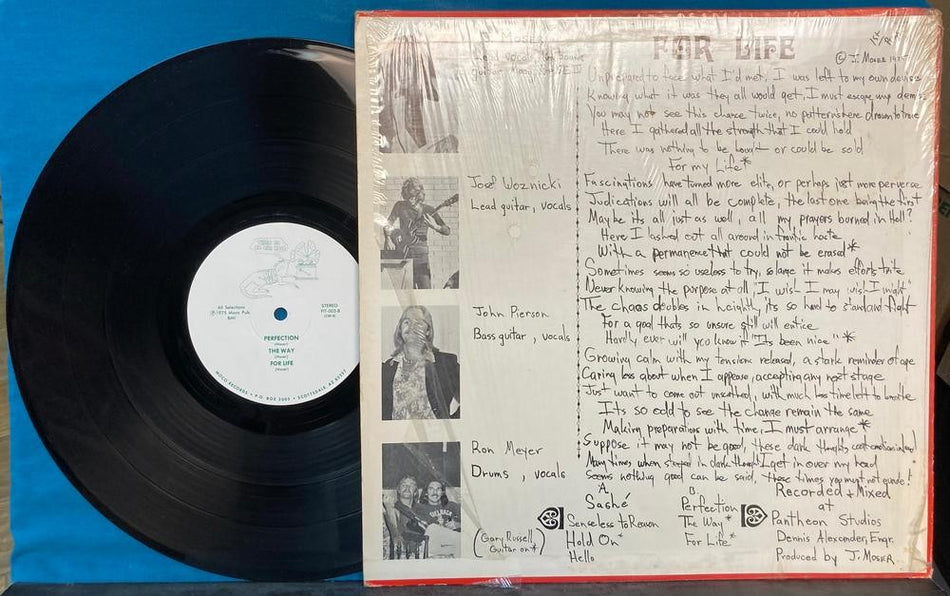 All Selections
℗ 1975 Moco Pub.
BMI
STEREO
PERFECTION
(Moser)
THE WAY
(Moser)
FOR LIFE
(Moser)
MOCO RECORDS • P.O. BOX 3005 • SCOTTSDALE, AZ 85257
J. Moser
Lead vocals
guitar
José Woznicki
Lead guitar, vocals
John Pierson
Bass guitar, vocals
Ron Meyer
Drums, vocals
(Gary Russell
Guitar on*)
FOR LIFE
© J. Moser
Unprepared to face what I'd met, I was left to my own devise
Knowing what it was they all would get, I must escape my
You may not see this chance twice, no pattern here drawn to
Here I gathered all the strength that I could hold
There was nothing to be bought or could be sold
For my Life*
Fascinations have turned more elite, or perhaps just more perverse
Judications will all be complete, the last one being the first
Maybe its all just as well, all my prayers burned in Hell?
Here I lashed out all around in frantic haste
With a permanence that could not be erased*
Sometimes seems so useless to try, so large it makes efforts trite
Never knowing the purpose at all, "I wish I may wish I might"
The chaos doubles in heighth, its so hard to stand and fight
For a goal thats so unsure still will entice
Hardly ever will you know it "Its been nice" *
Growing calm with my tension released, a stark reminder of age
Caring less about when I appear, accepting any next stage
Just want to come out unscathed, with much less time left to breathe
Its so odd to see the change remain the same
Making preparations with time, I must arrange*
Suppose it may not be good, these dark thoughts
Many times, when steeped in dark thought I get in over my head
Seems nothing good can be said, these times you must not
A.
Sashé
Senseless to Reason
Hold On*
Hello
B.
Perfection
The Way*
For Life*
Recorded + Mixed
at
Pantheon Studios
Dennis Alexander, Engr.
Produced by J. Moser